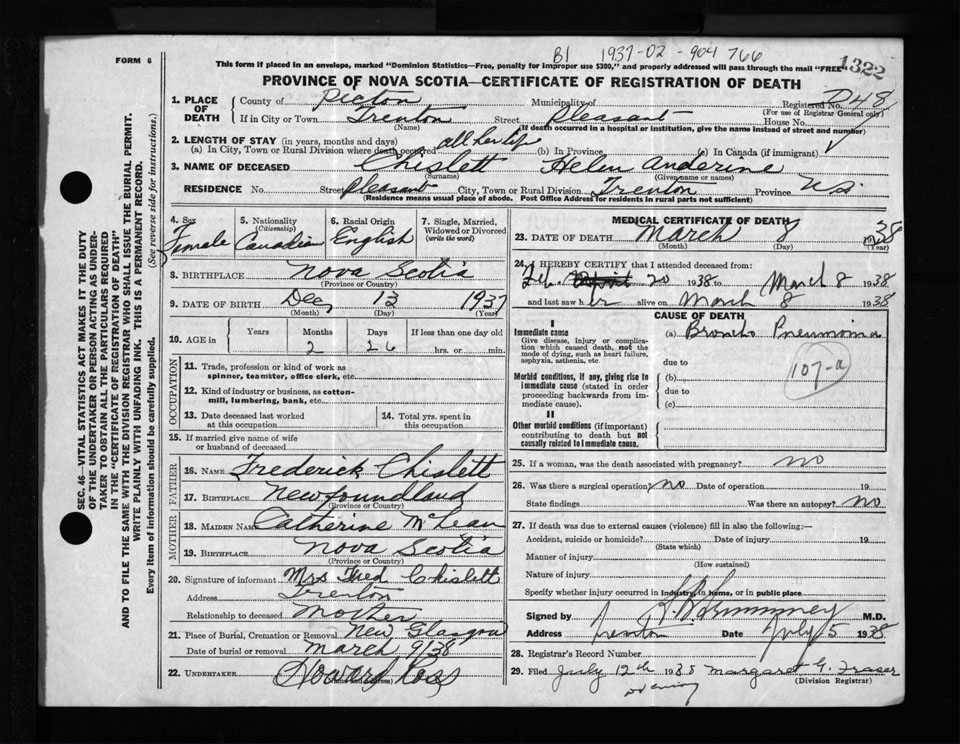 B1 1937-02-904766
FORM 6
This form if placed in an envelope, marked "Dominion Statistics—Free, penalty for improper use $300," and properly addressed will pass through the mail "FREE"
1322
PROVINCE OF NOVA SCOTIA—CERTIFICATE OF REGISTRATION OF DEATH
1. PLACE OF DEATH County of Pictou Municipality of Registered No. D48
(For use of Registrar General only)
If in City or Town Trenton Street Pleasant House No.
(Name) (If death occurred in a hospital or institution, give the name instead of street and number)
2. LENGTH OF STAY (in years, months and days)
(a) In City, Town or Rural Division where death occurred all her life (b) In Province (c) In Canada (if immigrant)
3. NAME OF DECEASED Chislett Helen Anderine
(Surname) (Given name or names)
RESIDENCE No. Street Pleasant City, Town or Rural Division Trenton Province N.S.
(Residence means usual place of abode. Post Office Address for residents in rural parts not sufficient)
SEC. 46—VITAL STATISTICS ACT MAKES IT THE DUTY
OF THE UNDERTAKER OR PERSON ACTING AS UNDER-
TAKER TO OBTAIN ALL THE PARTICULARS REQUIRED
IN THE "CERTIFICATE OF REGISTRATION OF DEATH"
AND TO FILE THE SAME WITH THE DIVISION REGISTRAR WHO SHALL ISSUE THE BURIAL PERMIT.
WRITE PLAINLY WITH UNFADING INK. THIS IS A PERMANENT RECORD.
Every item of information should be carefully supplied. (See reverse side for instructions.)
4. Sex 5. Nationality (Citizenship) 6. Racial Origin 7. Single, Married, Widowed or Divorced (write the word)
Female Canadian English
8. BIRTHPLACE Nova Scotia
(Province or Country)
9. DATE OF BIRTH Dec 13 1937
(Month) (Day) (Year)
10. AGE in Years Months Days If less than one day old
2 26 hrs. or min.
OCCUPATION
11. Trade, profession or kind of work as
spinner, teamster, office clerk, etc.
12. Kind of industry or business, as cotton-
mill, lumbering, bank, etc.
13. Date deceased last worked
at this occupation
14. Total yrs. spent in
this occupation
15. If married give name of wife
or husband of deceased
FATHER
16. NAME Frederick Chislett
17. BIRTHPLACE Newfoundland
(Province or Country)
MOTHER
18. MAIDEN NAME Catherine McLean
19. BIRTHPLACE Nova Scotia
(Province or Country)
20. Signature of informant Mrs Fred Chislett
Address Trenton
Relationship to deceased Mother
21. Place of Burial, Cremation or Removal New Glasgow
Date of burial or removal March 9/38
22. UNDERTAKER Howard Ross
MEDICAL CERTIFICATE OF DEATH
23. DATE OF DEATH March 8 1938
(Month) (Day) (Year)
24. I HEREBY CERTIFY that I attended deceased from:
Feb. 20 1938 to March 8 1938
and last saw her alive on March 8 1938
CAUSE OF DEATH
I
Immediate cause (a) Broncho Pneumonia
Give disease, injury or complication which caused death, not the mode of dying, such as heart failure, asphyxia, asthenia, etc.
due to
107-a
Morbid conditions, if any, giving rise to immediate cause (stated in order proceeding backwards from immediate cause).
(b)
due to
(c)
II
Other morbid conditions (if important) contributing to death but not causally related to immediate cause.
25. If a woman, was the death associated with pregnancy? no
26. Was there a surgical operation? no Date of operation 19
State findings Was there an autopsy? no
27. If death was due to external causes (violence) fill in also the following:—
Accident, suicide or homicide? Date of injury 19
(State which)
Manner of injury
(How sustained)
Nature of injury
Specify whether injury occurred in Industry, in home, or in public place
Signed by M.D.
Address Trenton Date July 5 1938
28. Registrar's Record Number
29. Filed July 12th 1938 Margaret G. Fraser
(Division Registrar)